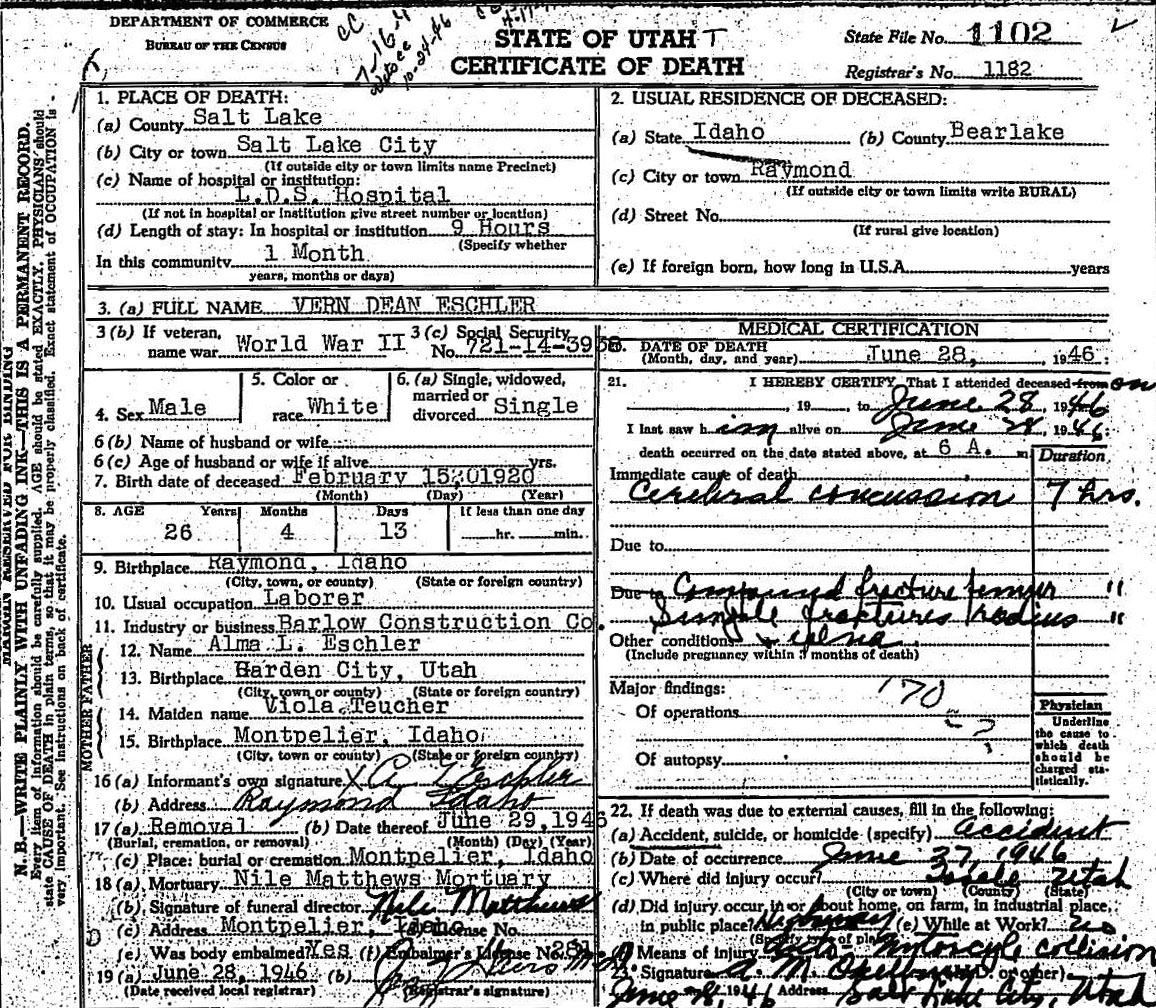 DEPARTMENT OF COMMERCE
BUREAU OF THE CENSUS
CC
7-16-4
10-24-46
STATE OF UTAH T
CERTIFICATE OF DEATH
State File No. 1102
Registrar's No. 1182
MARGIN RESERVED FOR BINDING
N.B.—WRITE PLAINLY WITH UNFADING INK—THIS IS A PERMANENT RECORD.
Every item of information should be carefully supplied. AGE should be stated EXACTLY. PHYSICIANS should
state CAUSE OF DEATH in plain terms, so that it may be properly classified. Exact statement of OCCUPATION is
very important. See instructions on back of certificate.
1. PLACE OF DEATH:
(a) County Salt Lake
(b) City or town Salt Lake City
(If outside city or town limits name Precinct)
(c) Name of hospital or institution:
L.D.S. Hospital
(If not in hospital or institution give street number or location)
(d) Length of stay: In hospital or institution 9 Hours
(Specify whether
In this community 1 Month
years, months or days)
2. USUAL RESIDENCE OF DECEASED:
(a) State Idaho (b) County Bearlake
(c) City or town Raymond
(If outside city or town limits write RURAL)
(d) Street No.
(If rural give location)
(e) If foreign born, how long in U.S.A. years
3. (a) FULL NAME VERN DEAN ESCHLER
3 (b) If veteran, name war World War II
3 (c) Social Security No. 721-14-3958
4. Sex Male
5. Color or race White
6. (a) Single, widowed, married or divorced Single
6 (b) Name of husband or wife
6 (c) Age of husband or wife if alive yrs.
7. Birth date of deceased February 15 1920
(Month) (Day) (Year)
8. AGE Years Months Days If less than one day
26 4 13 hr. min.
9. Birthplace Raymond, Idaho
(City, town, or county) (State or foreign country)
10. Usual occupation Laborer
11. Industry or business Barlow Construction Co.
FATHER
12. Name Alma L. Eschler
13. Birthplace Garden City, Utah
(City, town or county) (State or foreign country)
MOTHER
14. Maiden name Viola Teucher
15. Birthplace Montpelier, Idaho
(City, town or county) (State or foreign country)
16 (a) Informant's own signature X A L Eschler
(b) Address Raymond Idaho
17 (a) Removal (b) Date thereof June 29, 1946
(Burial, cremation, or removal) (Month) (Day) (Year)
(c) Place: burial or cremation Montpelier, Idaho
18 (a) Mortuary Nile Matthews Mortuary
(b) Signature of funeral director Nile Matthews
(c) Address Montpelier, Idaho License No.
(e) Was body embalmed? Yes (f) Embalmer's License No. 281
19 (a) June 28, 1946 (b)
(Date received local registrar) (Registrar's signature)
MEDICAL CERTIFICATION
20. DATE OF DEATH
(Month, day, and year) June 28, 1946
21. I HEREBY CERTIFY, That I attended deceased from on
, 19 , to June 28, 1946
I last saw him alive on June 28, 1946
death occurred on the date stated above, at 6 A. m
Duration
Immediate cause of death
Cerebral concussion 7 hrs.
Due to
Due to Compound fracture femur "
Simple fractures radius "
Other conditions & ulna
(Include pregnancy within 3 months of death)
Major findings: 170
Of operations
?
Of autopsy
Physician
Underline the cause to which death should be charged statistically.
22. If death was due to external causes, fill in the following:
(a) Accident, suicide, or homicide (specify) accident
(b) Date of occurrence June 27, 1946
(c) Where did injury occur? Utah
(City or town) (County) (State)
(d) Did injury occur in or about home, on farm, in industrial place,
in public place? Highway (e) While at Work? no
(Specify type of place)
(f) Means of injury Auto - Motorcycle collision
23. Signature M. (M.D. or other)
June 28, 1946 Address Salt Lake City, Utah